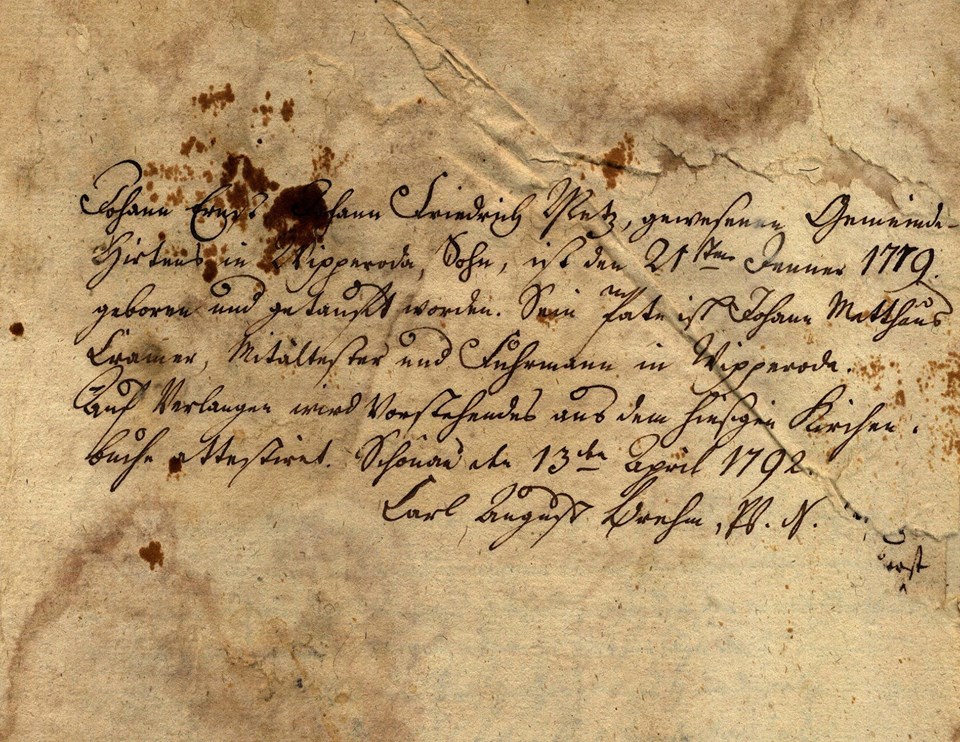 Johann Ernst Johann Friedrich Metz, gewesenen Gemeinde-
Hirtens in Wipperoda, Sohn, ist den 21sten Jenner 1779.
geboren und getauft worden. Sein Pate ist Johann Matthäus
Cramer, Mitältester und Fuhrmann in Wipperoda.
Auf Verlangen wird Vorstehendes aus dem hiesigen Kirchen-
buche attestiret. Schönau den 13ten April 1792.
Carl August Brehm, Pf.